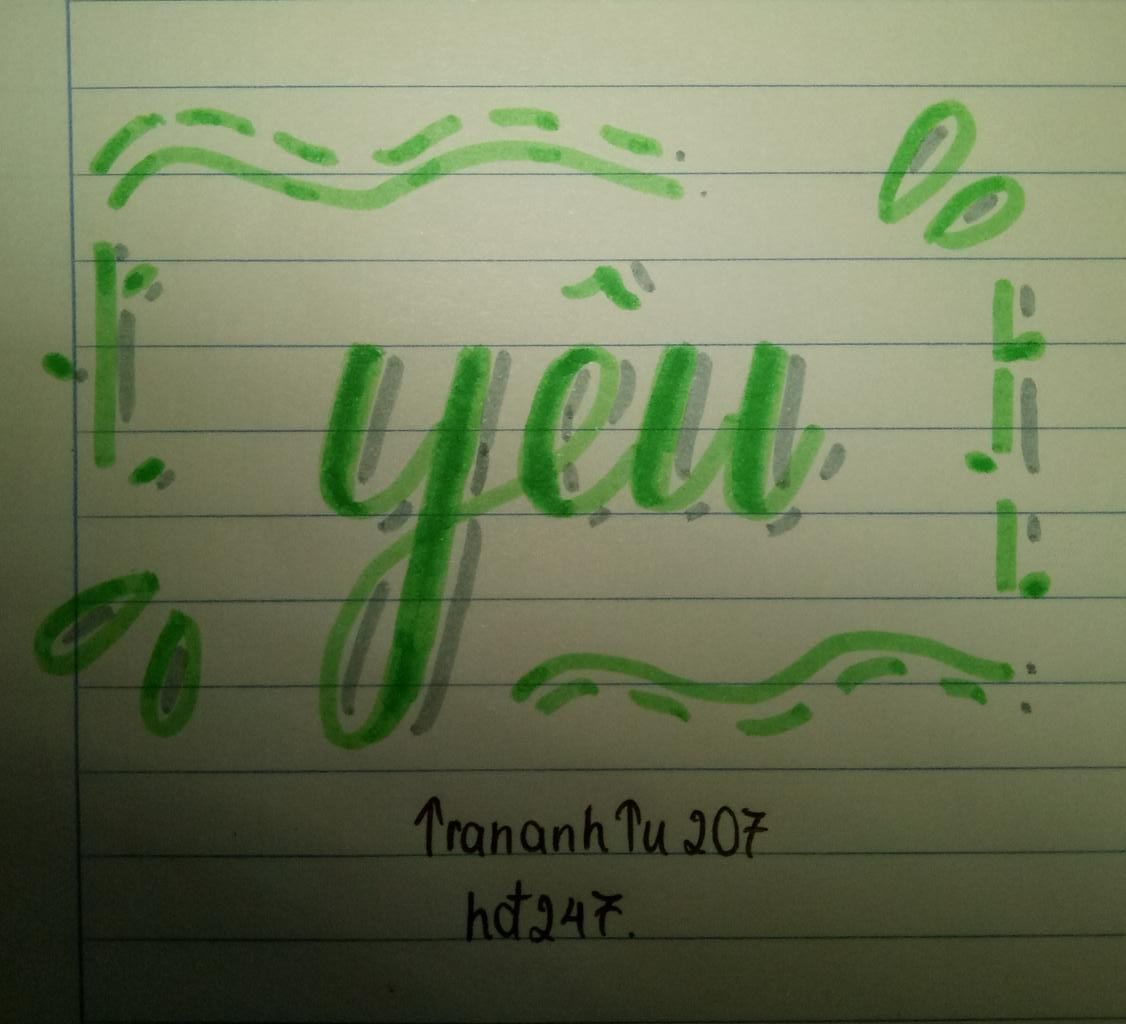 yêu
TrananhTu 207
hđ247.